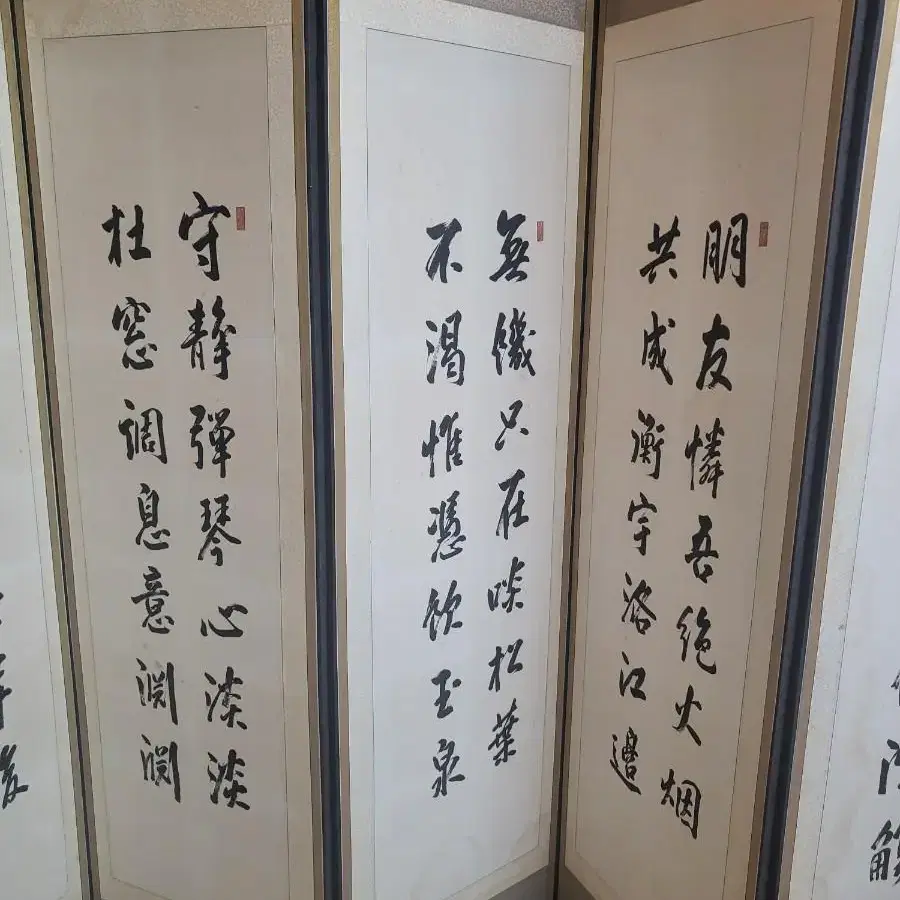 朋友憐吾絶火烟
共成衡宇洛江邊
無饑只在啖松葉
不渴惟憑飲玉泉
守靜彈琴心淡淡
杜窓調息意淵淵